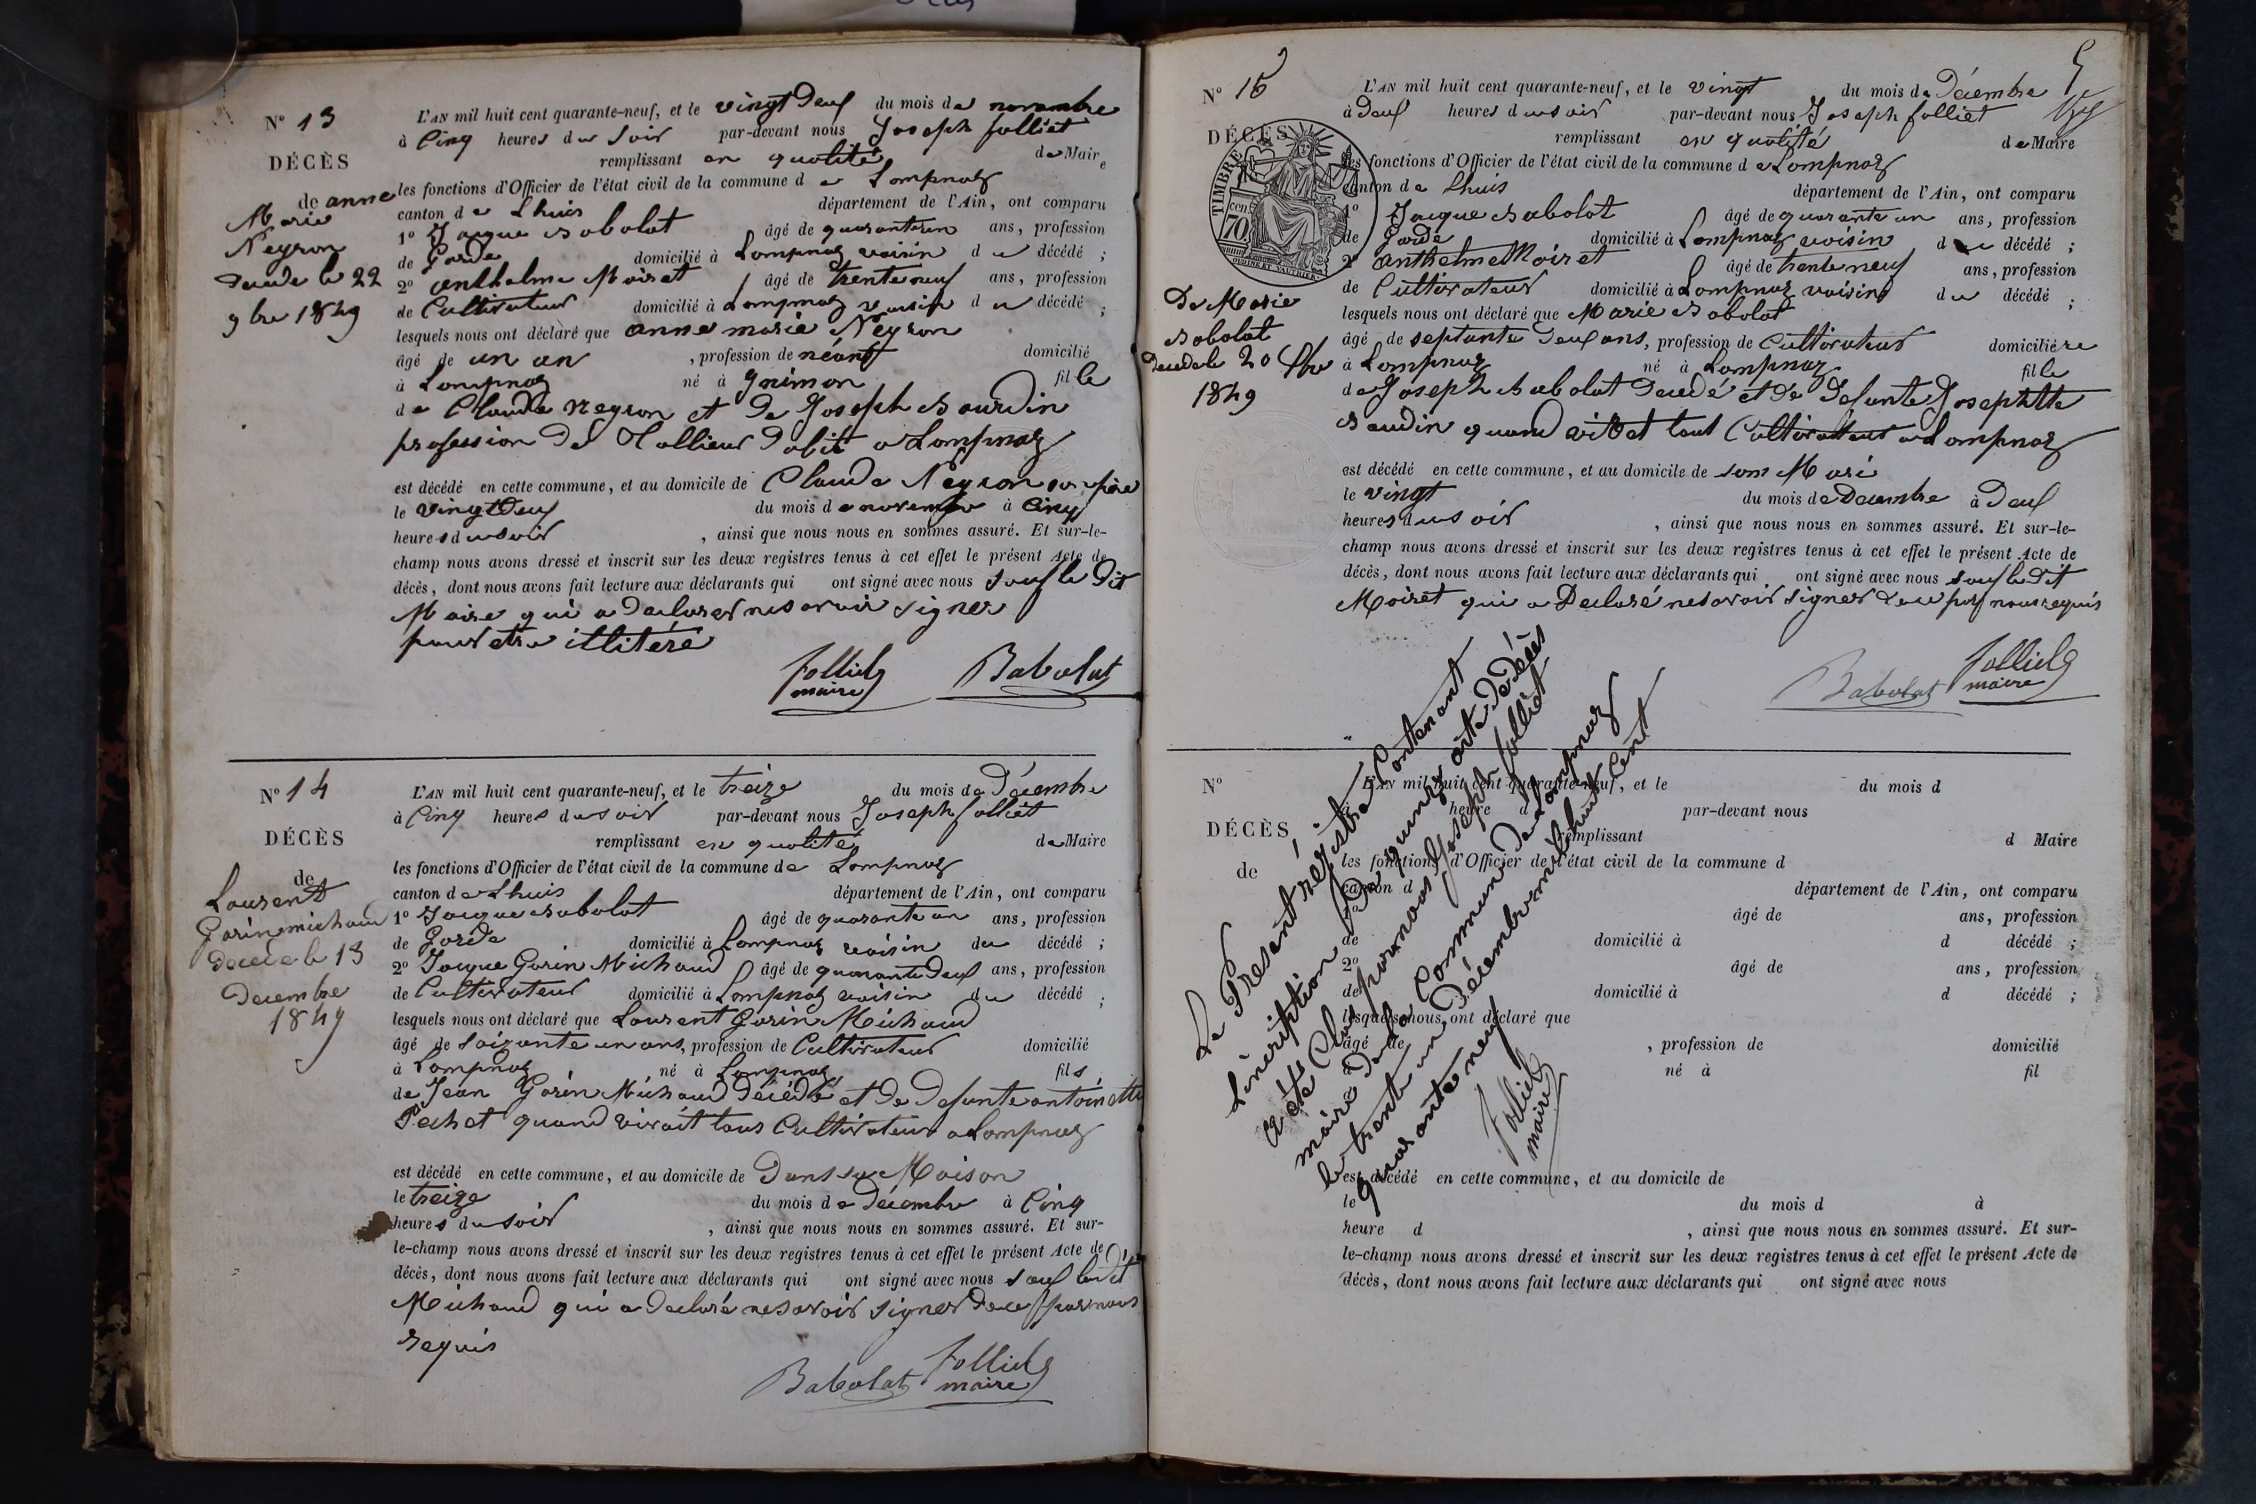 N° 13
DÉCÈS
de anne
Marie
Neyron
decede le 22
9bre 1849
L'AN mil huit cent quarante-neuf, et le vingt Deux du mois de novembre
à Cinq heures du Soir par-devant nous Joseph folliet
remplissant en qualité de Maire
les fonctions d'Officier de l'état civil de la commune de Lompnaz
canton de Lhuis département de l'Ain, ont comparu
1° Jacque Babolat âgé de quarante un ans, profession
de Garde domicilié à Lompnaz voisin du décédé ;
2° anthelme Moiret âgé de trente neuf ans, profession
de Cultivateur domicilié à Lompnaz voisin du décédé ;
lesquels nous ont déclaré que anne marie Neyron
âgé de un an , profession de néant domicilié
à Lompnaz né à fille
de Claude neyron et de Joseph Bourdin
profession de Tallieur Dabit a Lompnaz
est décédé en cette commune, et au domicile de Claude Neyron son père
le vingt Deux du mois de novembre à Cinq
heures du soir , ainsi que nous nous en sommes assuré. Et sur-le-
champ nous avons dressé et inscrit sur les deux registres tenus à cet effet le présent Acte de
décès, dont nous avons fait lecture aux déclarants qui ont signé avec nous sauf le Dit
Moire qui a declarer ne savoir signer
pour etre illitéré
folliet Babolat
maire
N° 14
DÉCÈS
de
Laurent
Gorin michaud
decede le 13
Decembre
1849
L'AN mil huit cent quarante-neuf, et le treize du mois de Décembre
à Cinq heures du soir par-devant nous Joseph folliet
remplissant en qualité de Maire
les fonctions d'Officier de l'état civil de la commune de Lompnaz
canton de Lhuis département de l'Ain, ont comparu
1° Jacque Babolat âgé de quarante un ans, profession
de Garde domicilié à Lompnaz voisin du décédé ;
2° Jacque Gorin Michaud âgé de quarante Deux ans, profession
de Cultivateur domicilié à Lompnaz voisin du décédé ;
lesquels nous ont déclaré que Laurent Gorin Michaud
âgé de soixante un ans, profession de Cultivateur domicilié
à Lompnaz né à Lompnaz fils
de Jean Gorin Michaud Décédé et de Defunte antoinette
quand vivait tous Cultivateur a Lompnaz
est décédé en cette commune, et au domicile de Dans sa Maison
le treize du mois de Décembre à Cinq
heures du soir , ainsi que nous nous en sommes assuré. Et sur-
le-champ nous avons dressé et inscrit sur les deux registres tenus à cet effet le présent Acte de
décès, dont nous avons fait lecture aux déclarants qui ont signé avec nous sauf le Dit
Michaud qui a declaré ne savoir signer de ce par nous
requis
Babolat folliet
maire
N° 15
DÉCÈS
TIMBRE
70 cen.
De Marie
Babolat
Decede le 20 Xbre
1849
L'AN mil huit cent quarante-neuf, et le vingt du mois de Décembre
à Deux heures du soir par-devant nous Joseph folliet
remplissant en qualité de Maire
les fonctions d'Officier de l'état civil de la commune de Lompnaz
canton de Lhuis département de l'Ain, ont comparu
1° Jacque Babolat âgé de quarante un ans, profession
de Garde domicilié à Lompnaz voisin du décédé ;
2° anthelme Moiret âgé de trente neuf ans, profession
de Cultivateur domicilié à Lompnaz voisins du décédé ;
lesquels nous ont déclaré que Marie Babolat
âgé de septante Deux ans, profession de Cultivateur domicilié
à Lompnaz né à Lompnaz fille
de Joseph Babolat Decedé et de Defunte Josephtte
Baudin quand tout Cultivateur a Lompnaz
est décédé en cette commune, et au domicile de som Mari
le vingt du mois de Decembre à Deux
heures du soir , ainsi que nous nous en sommes assuré. Et sur-le-
champ nous avons dressé et inscrit sur les deux registres tenus à cet effet le présent Acte de
décès, dont nous avons fait lecture aux déclarants qui ont signé avec nous sauf le Dit
Moiret qui a Declaré ne savoir signer de ce par nous requis
Babolat folliet
maire
N°
DÉCÈS
de
L'AN mil huit cent quarante-neuf, et le du mois d
à heure d par-devant nous
remplissant d Maire
les fonctions d'Officier de l'état civil de la commune d
canton d département de l'Ain, ont comparu
1° âgé de ans, profession
de domicilié à d décédé ;
2° âgé de ans, profession
de domicilié à d décédé ;
lesquels nous ont déclaré que
âgé de , profession de domicilié
à né à fil
de
est décédé en cette commune, et au domicile de
le du mois d à
heure d , ainsi que nous nous en sommes assuré. Et sur-
le-champ nous avons dressé et inscrit sur les deux registres tenus à cet effet le présent Acte de
décès, dont nous avons fait lecture aux déclarants qui ont signé avec nous
Le Présent régistre Contenant
Lincription De quinze acte de décès
a été Clos par nous Joseph folliet
maire de la Commune de Lompnaz
le trente un Décembre mil huit Cent
quarante neuf
folliet
maire